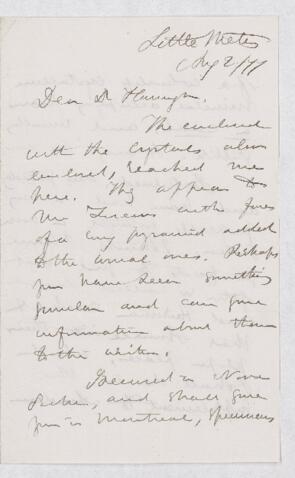 Little Metis
Aug 2/77
Dear Dr Harrington.
The enclosed
with the crystals also
enclosed, reached me
here. They appear to
me Zircons with faces
of a long pyramid added
to the usual ones. Perhaps
you have seen something
similar and can give
information about them
to the writer.
I secured in Nova
Scotia, and shall give
you in Montreal, specimens